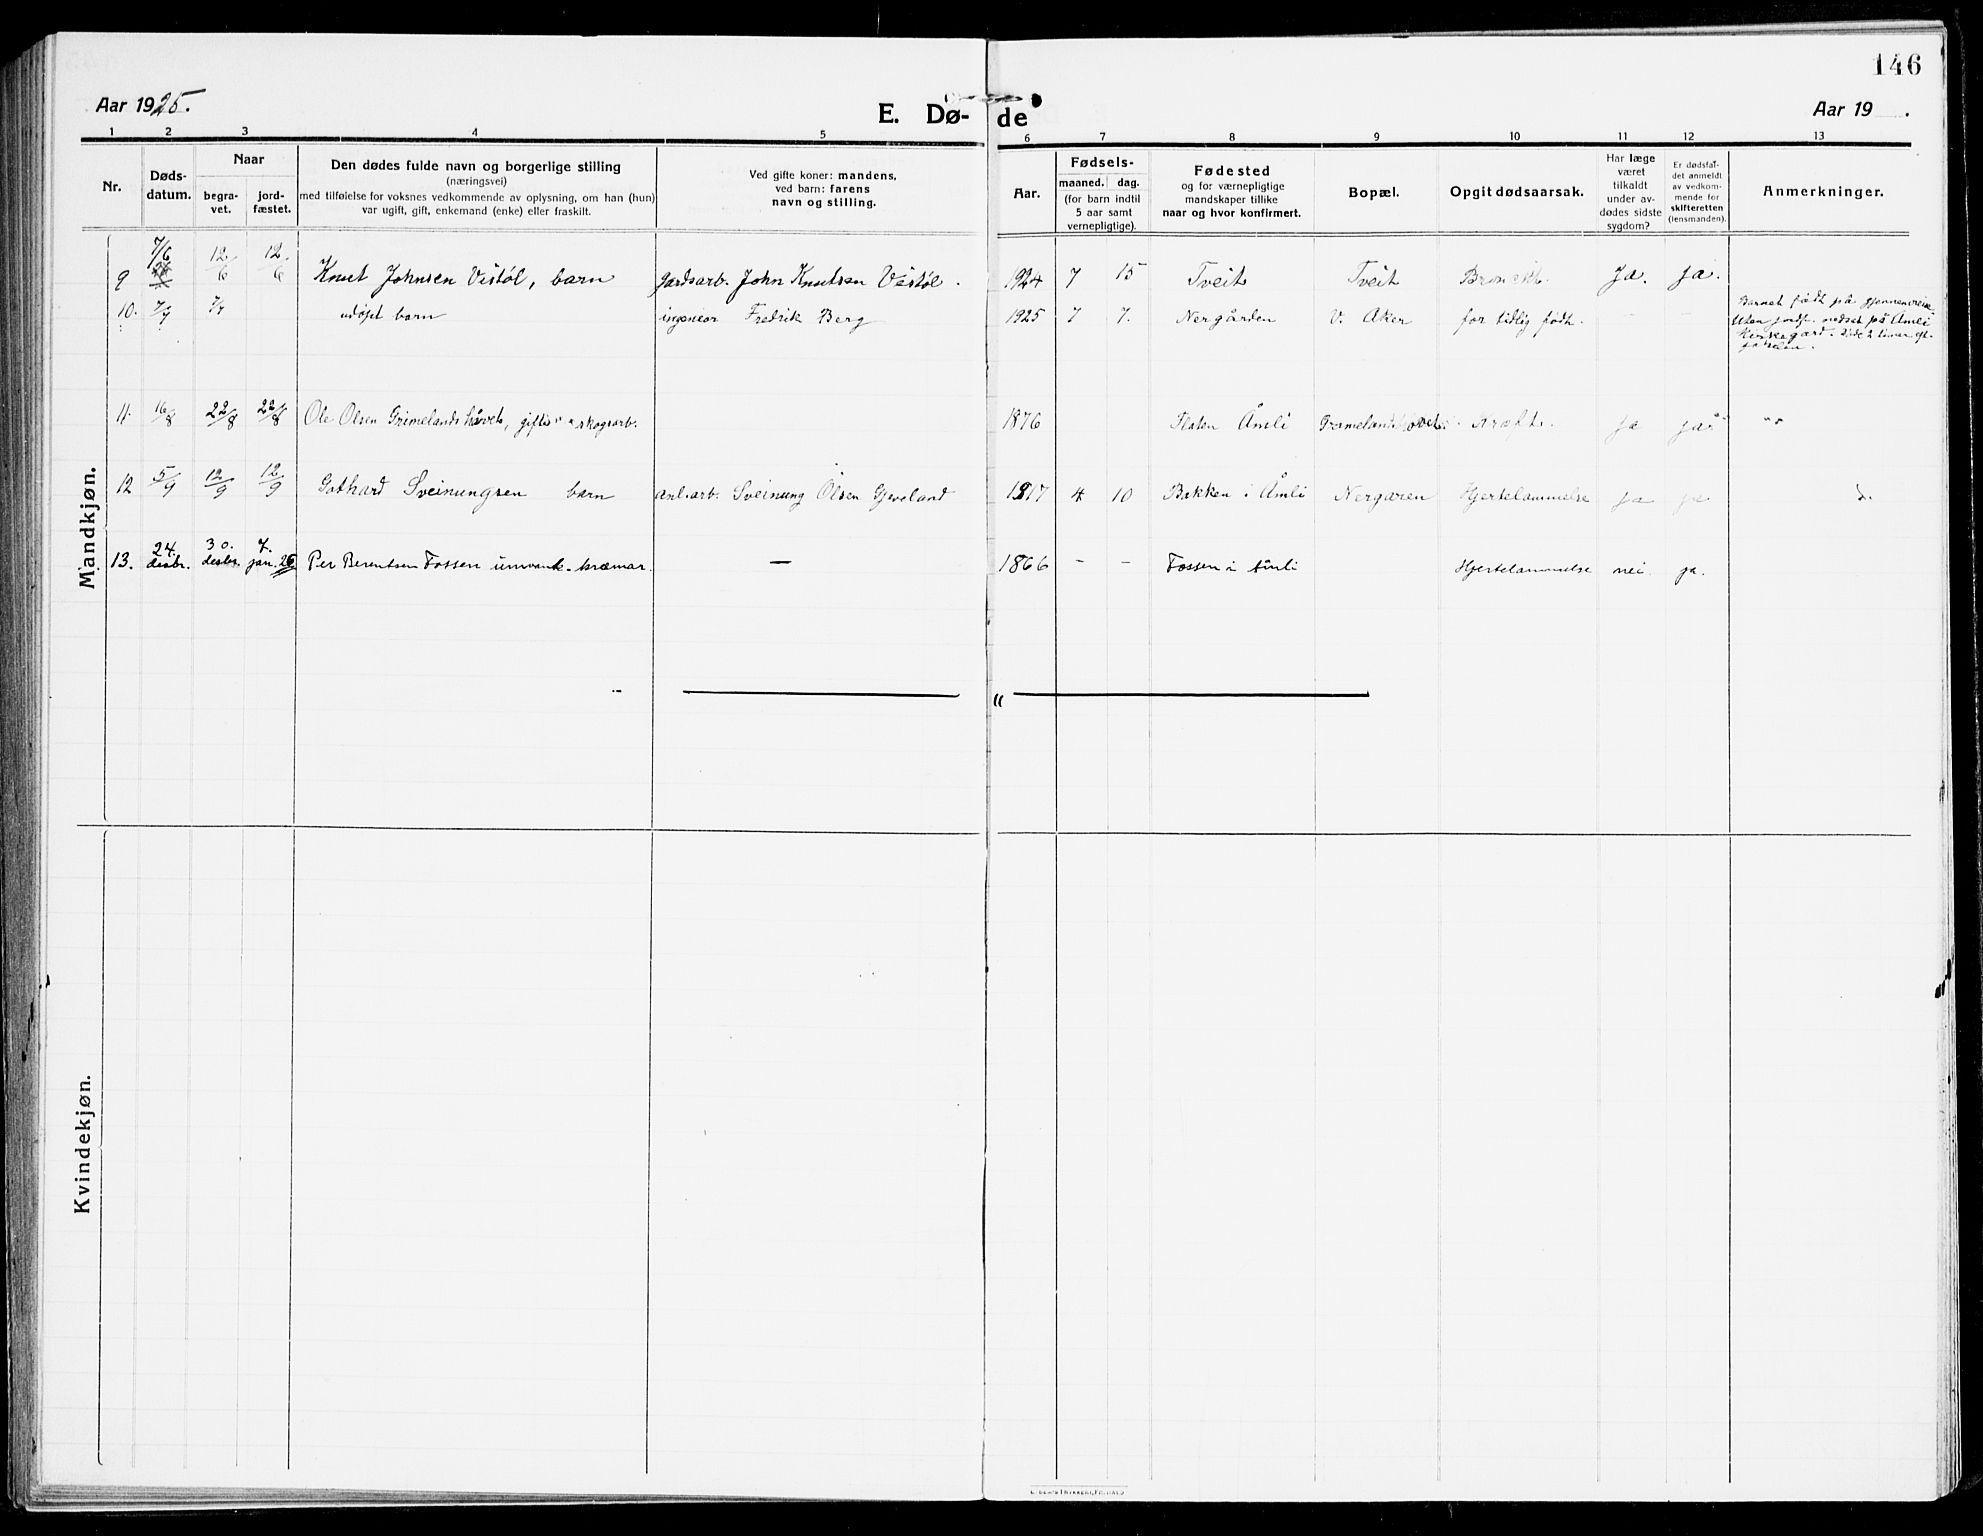 146
Aar 1925.
E. Dø-
de
Aar 19 .
1 2 3 4 5 6 7 8 9 10 11 12 13
Nr.
Døds-
datum.
Naar
begra-
vet.
jord-
fæstet.
Den dødes fulde navn og borgerlige stilling
(næringsvei)
med tilføielse for voksnes vedkommende av oplysning, om han (hun)
var ugift, gift, enkemand (enke) eller fraskilt.
Ved gifte koner: mandens,
ved barn: farens
navn og stilling.
Aar.
Fødsels-
maaned. dag.
(for barn indtil
5 aar samt
vernepligtige).
Fødested
og for værnepligtige
mandskaper tillike
naar og hvor konfirmert.
Bopæl.
Opgit dødsaarsak.
Har læge
været
tilkaldt
under av-
dødes sidste
sygdom?
Er dødsfal-
det anmeldt
av vedkom-
mende for
skifteretten
(lensmanden).
Anmerkninger.
Mandkjøn.
9 7/6 12/6 12/6 Knut Johnsen Vistøl, barn gardsarb. John Knutsen Vistøl. 1924 7 15 Tveit Tveit Ja. ja.
10. 7/7 7/7 udøpt barn ingeniør Fredrik Berg 1925 7 7. Nergården V. Aker for tidlig født. - - Barnet født på gjennomreise.
Uten jordf. nedsat på Åmli
kirkegard. Døde 2 timer eft.
fødselen.
11. 16/8 22/8 22/8 Ole Olsen Grimelandshåvet, gift skogsarb. 1876 Flaten Åmli Kræft. ja ja "
12 5/9 12/9 12/9 Gothard Sveinungsen barn anl.arb. Sveinung Olsen Gjeveland 1917 4 10 Bakken i Åmli Nergaren Hjertelammelse ja ja
13. 24. desbr. 30. desbr. 7. jan. 26 Per Berentsen Fossen kræmar. — 1866 - - Fossen i Åmli Hjertelammelse nei ja.
"
Kvindekjøn.